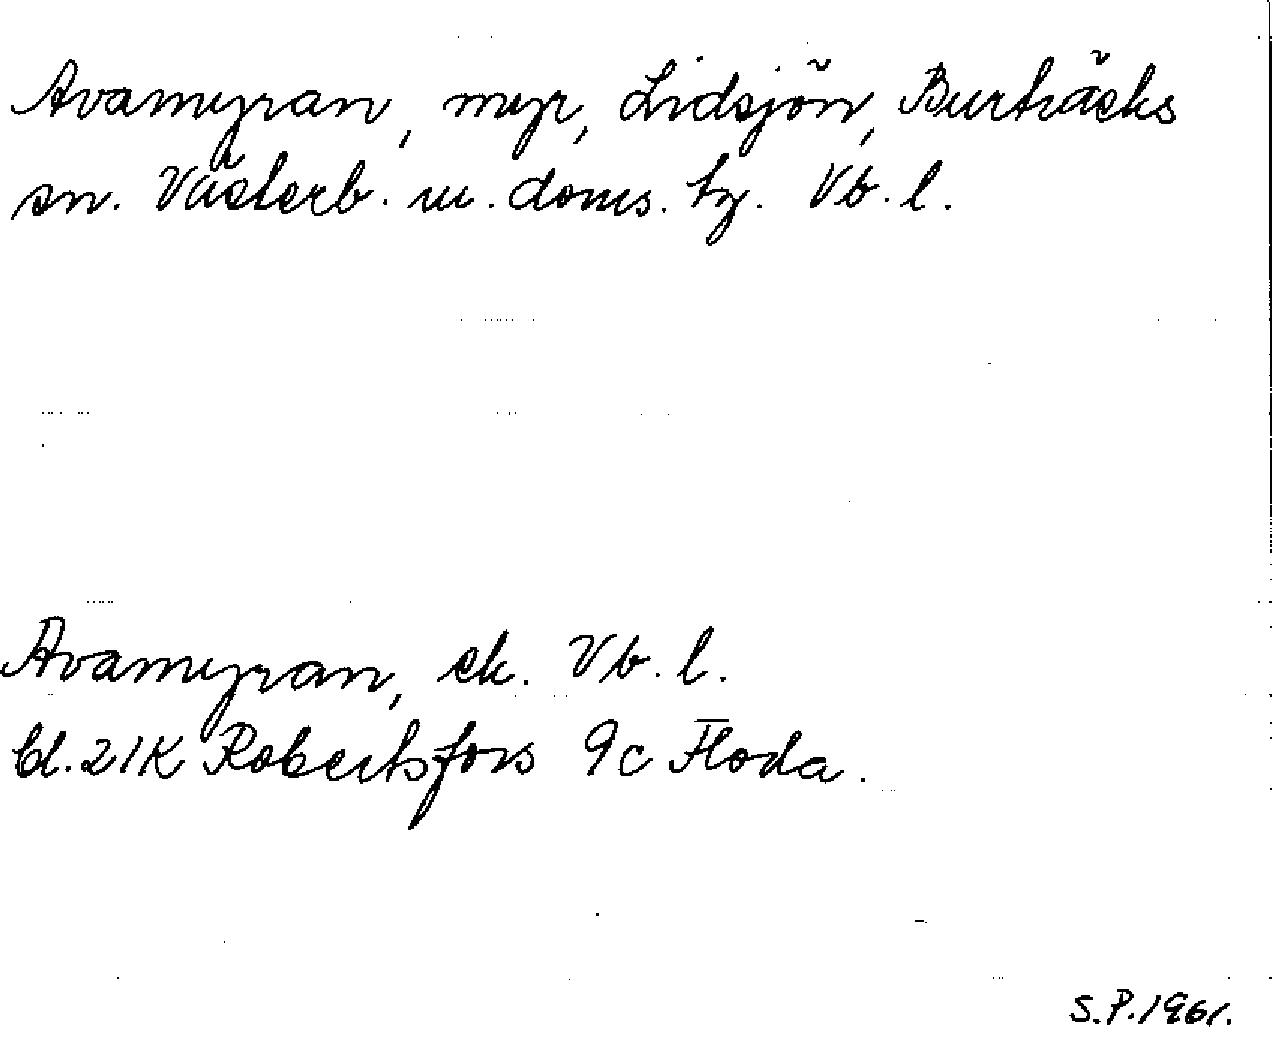 Avamyran, myr, Lidsjön, Burträsks
sn. Västerb. m. doms. tg. Vb. l.
Avamyran, ek. Vb. l.
bl. 21K Robertsfors 9c Floda.
S.P. 1961.